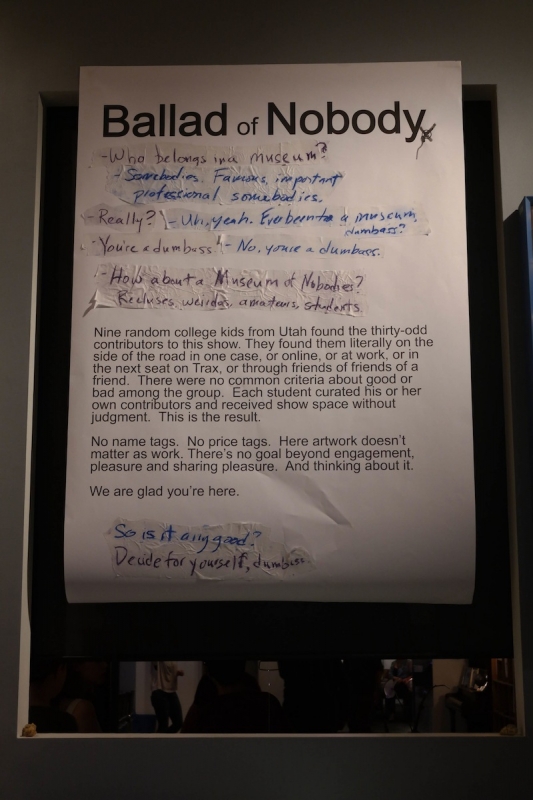 Ballad of Nobody
- Who belongs in a museum?
- Somebodies. Famous, important
professional somebodies.
- Really? - Uh, yeah. Ever been to a museum,
dumbass?
- You're a dumbass! - No, you're a dumbass.
- How about a Museum of Nobodies?
Recluses, weirdos, amateurs, students.
Nine random college kids from Utah found the thirty-odd
contributors to this show. They found them literally on the
side of the road in one case, or online, or at work, or in
the next seat on Trax, or through friends of friends of a
friend. There were no common criteria about good or
bad among the group. Each student curated his or her
own contributors and received show space without
judgment. This is the result.
No name tags. No price tags. Here artwork doesn't
matter as work. There's no goal beyond engagement,
pleasure and sharing pleasure. And thinking about it.
We are glad you're here.
So is it any good?
Decide for yourself, dumbass